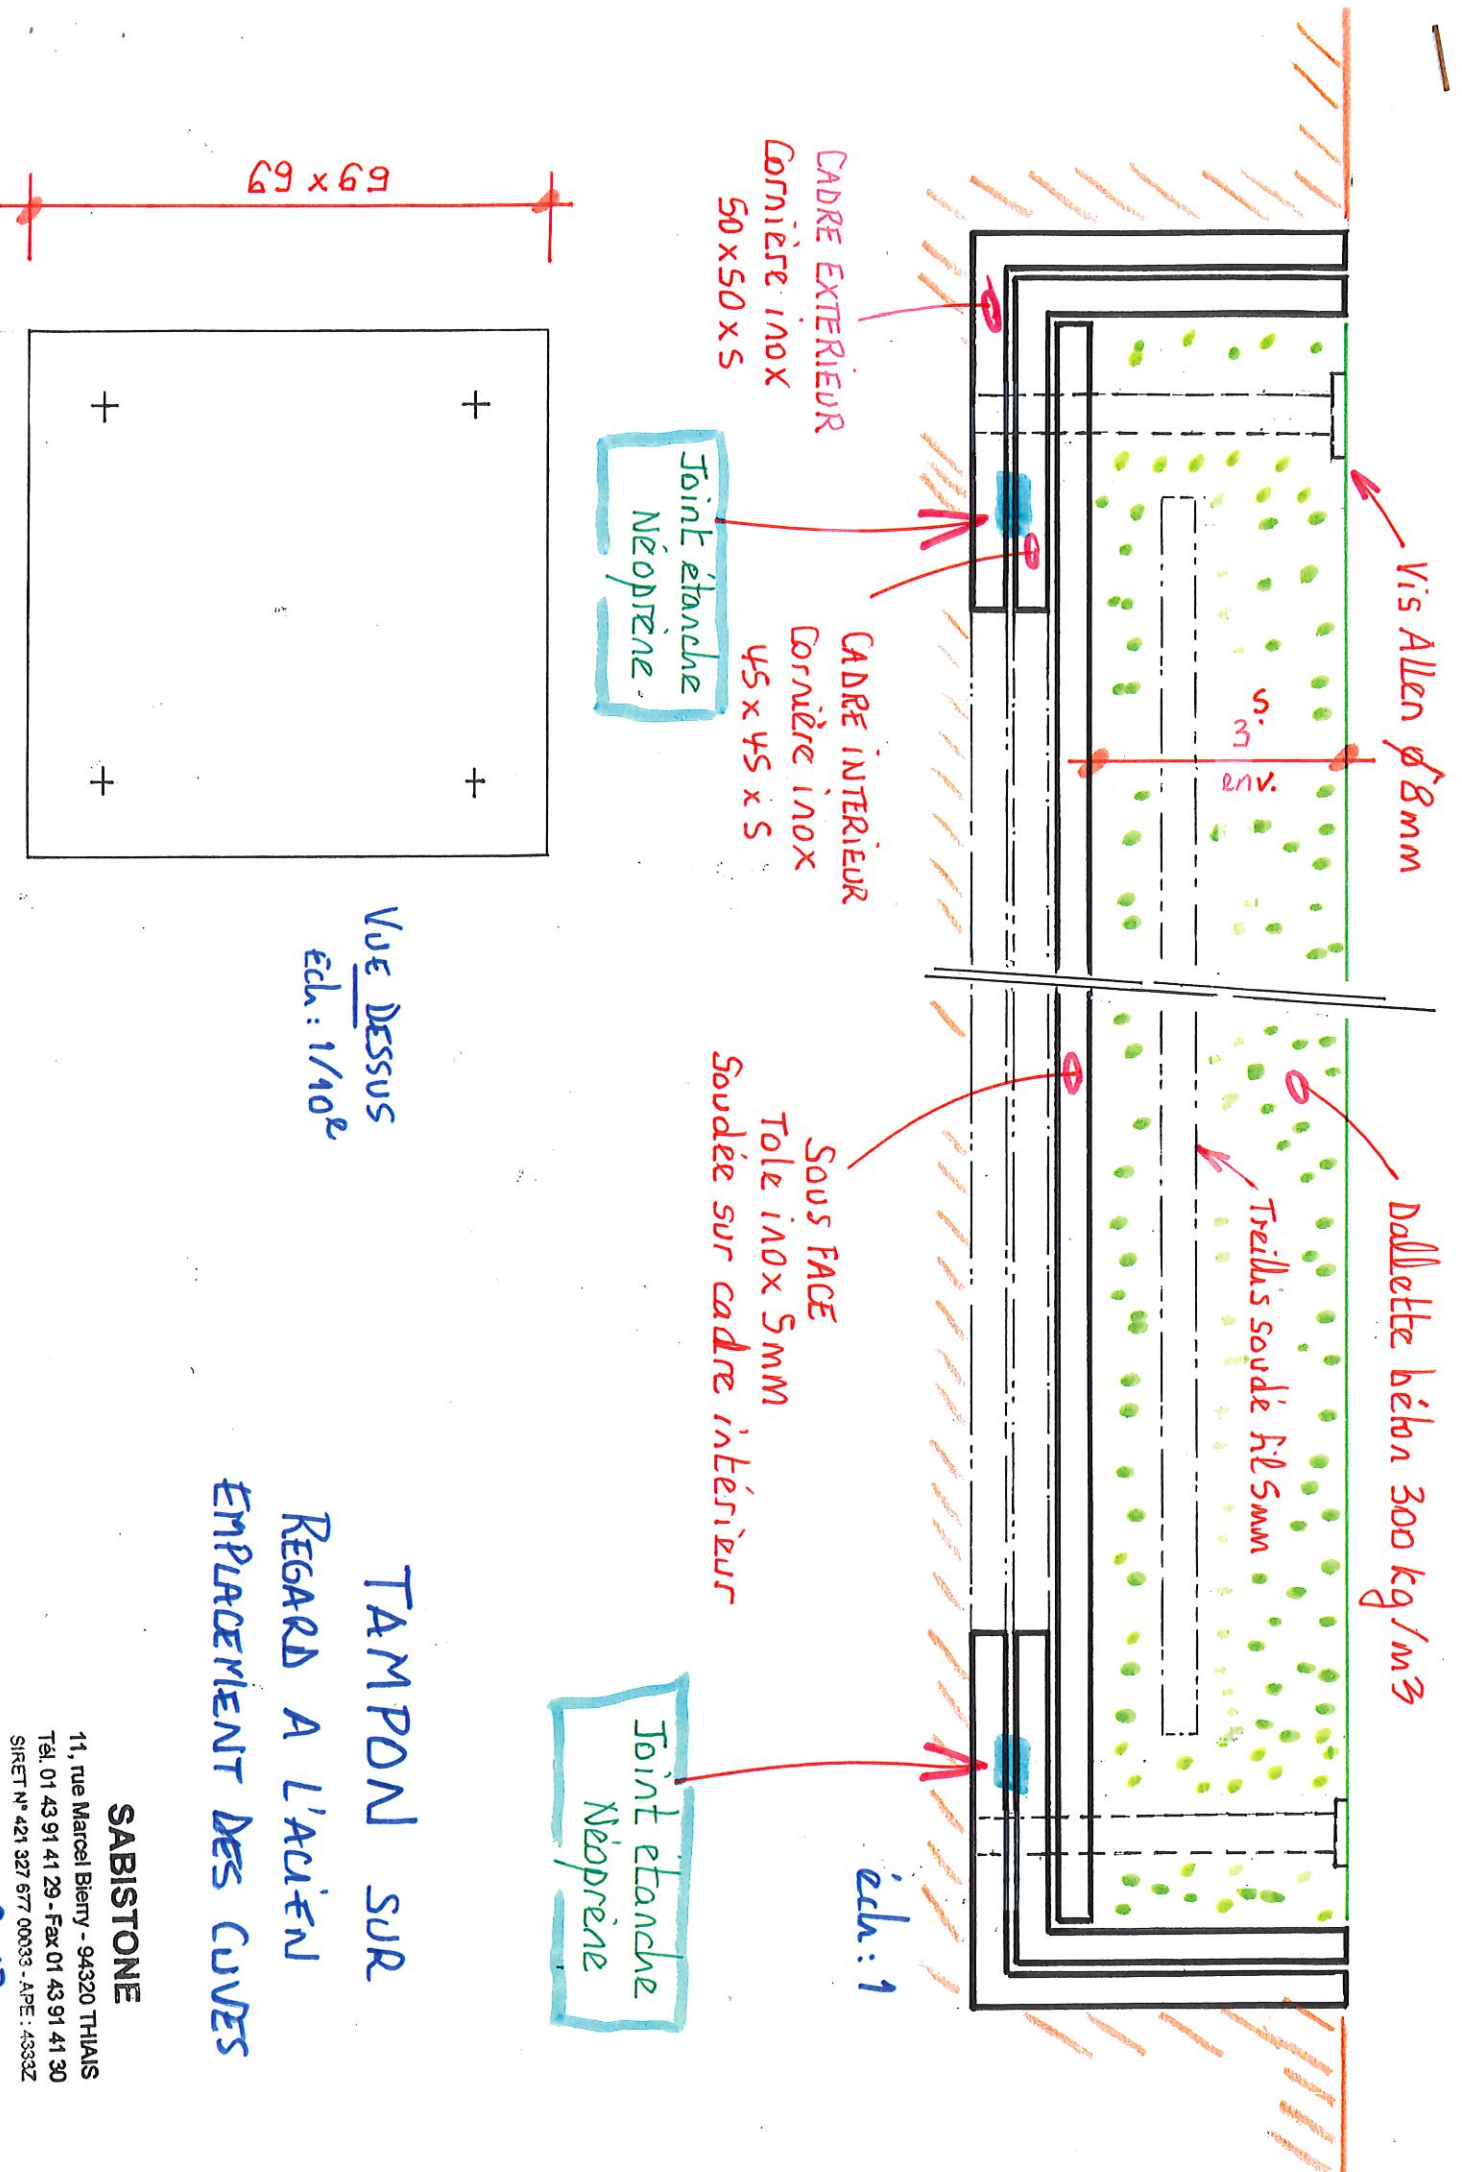 Vis Allen ø 8mm
Dallette béton 300 kg/m3
Treillis soudé fil 5mm
3.5
env.
CADRE EXTERIEUR
Cornière inox
50 x 50 x 5
CADRE INTERIEUR
Cornière inox
45 x 45 x 5
Joint étanche
Néoprène.
SOUS FACE
Tole inox 5mm
Soudée sur cadre intérieur
éch : 1
Joint étanche
Néoprène
69 x 69
VUE DESSUS
Ech : 1/10e
TAMPON SUR
REGARD A L'ACIEN
EMPLACEMENT DES CUVES
SABISTONE
11, rue Marcel Bierry - 94320 THIAIS
Tél. 01 43 91 41 29 - Fax 01 43 91 41 30
SIRET N° 421 327 677 00033 - APE : 4333Z